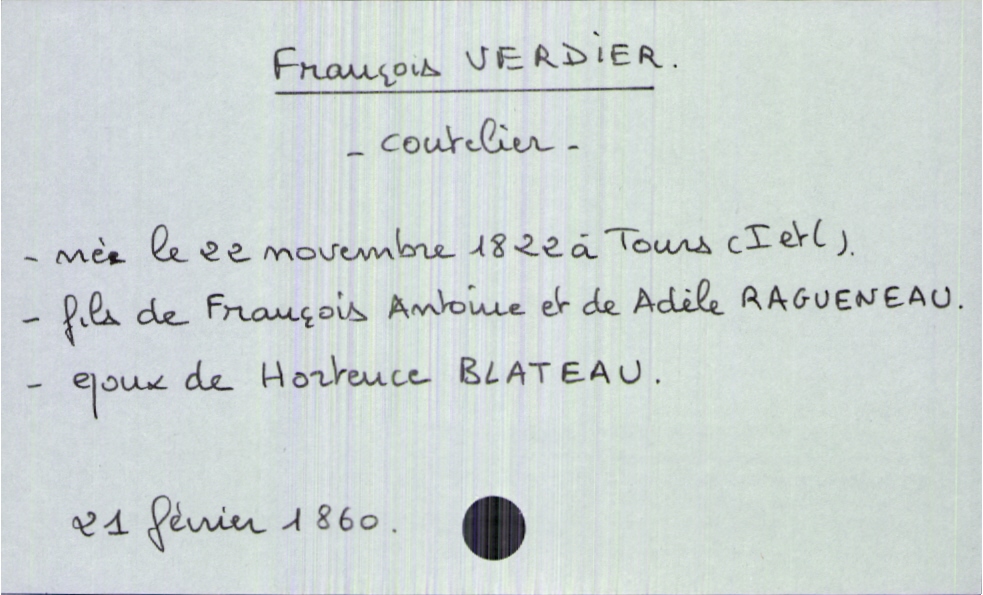 François VERDIER.
- coutelier -
- née le 22 novembre 1822 à Tours (I et L).
- fils de François Antoine et de Adèle RAGUENEAU.
- époux de Hortence BLATEAU.
21 février 1860.